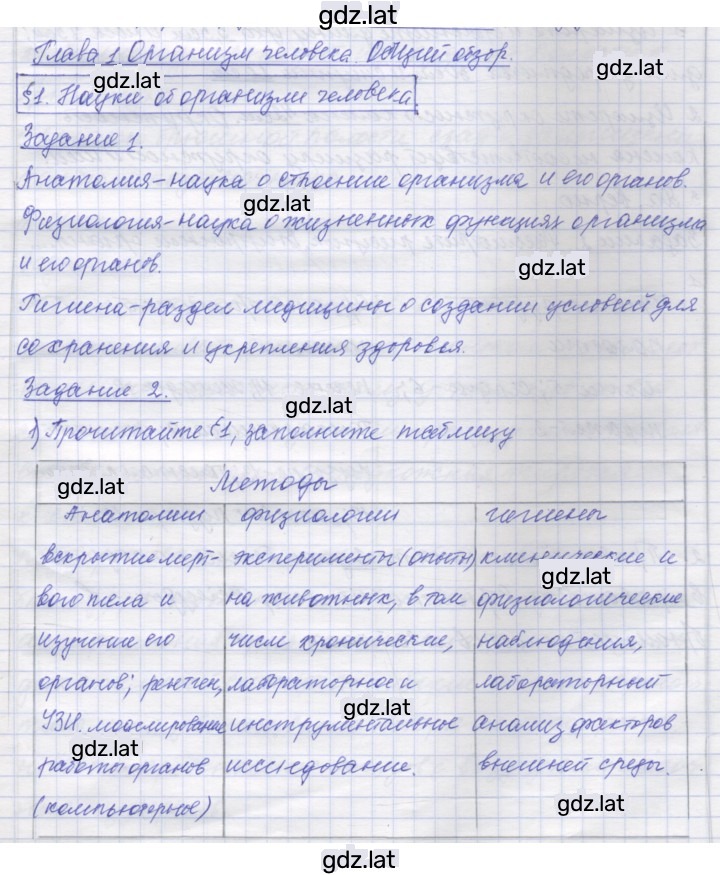 gdz.lat
Глава 1 Организм человека. Общий обзор.
gdz.lat
gdz.lat
§1. Науки об организме человека.
Задание 1.
Анатомия-наука о строение организма и его органов.
gdz.lat
Физиология-наука о жизненных функциях организма
и его органов.
gdz.lat
Гигиена-раздел медицины о создании условий для
сохранения и укрепления здоровья.
Задание 2.
gdz.lat
1) Прочитайте §1, заполните таблицу
gdz.lat
Методы
Анатомии физиологии гигиены
вскрытие мерт- эксперименты (опыты) клинические и
gdz.lat
вого тела и на животных, в том физиологические
изучение его числе хронические, наблюдения,
органов; рентген, лабораторное и лабораторный
gdz.lat
УЗИ. моделирование инструментальное анализ факторов
gdz.lat
работы органов исследование. внешней среды.
(компьютерные)
gdz.lat
gdz.lat